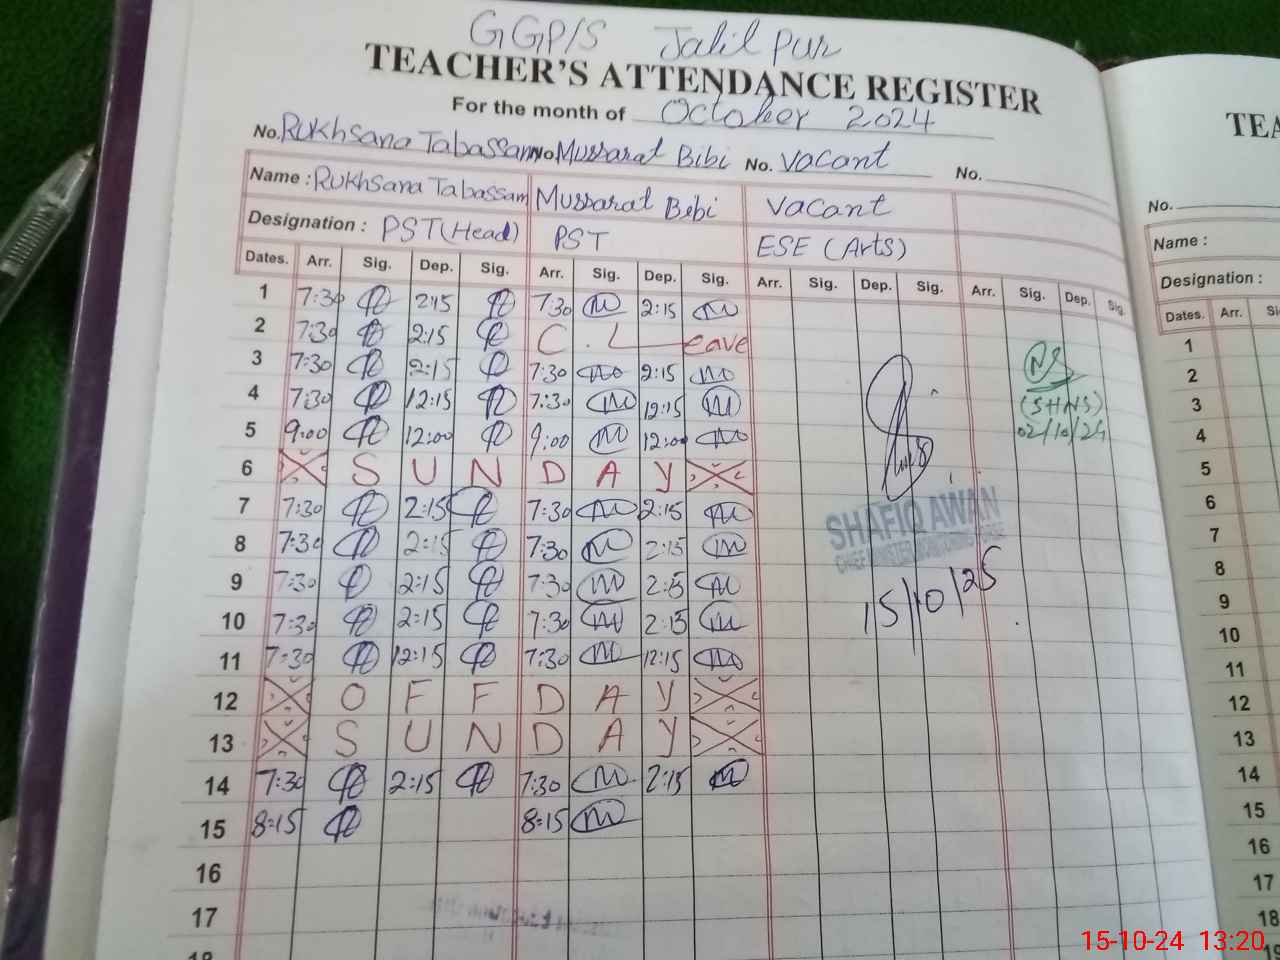 GGP/S Jalil Pur
TEACHER'S ATTENDANCE REGISTER
For the month of October 2024
No. Rukhsana Tabassam No. Mussarat Bibi No. Vacant No.
Name : Rukhsana Tabassam Mussarat Bibi Vacant
Designation : PST (Head) PST ESE (Arts)
Dates. Arr. Sig. Dep. Sig. Arr. Sig. Dep. Sig. Arr. Sig. Dep. Sig. Arr. Sig. Dep. Sig.
1 7:30 2:15 7:30 2:15
2 7:30 2:15 C. Leave
3 7:30 2:15 7:30 2:15
4 7:30 12:15 7:30 12:15
5 9:00 12:00 9:00 12:00
6 SUNDAY
7 7:30 2:15 7:30 2:15
8 7:30 2:15 7:30 2:15
9 7:30 2:15 7:30 2:15
10 7:30 2:15 7:30 2:15
11 7:30 12:15 7:30 12:15
12 OFF DAY
13 SUNDAY
14 7:30 2:15 7:30 2:15
15 8:15 8:15
16
17
18
(SHNS)
02/10/24
SHAFIQ AWAN
15/10/25
TEA
No.
Name :
Designation :
Dates. Arr.
1
2
3
4
5
6
7
8
9
10
11
12
13
14
15
16
17
18
19
15-10-24 13:20